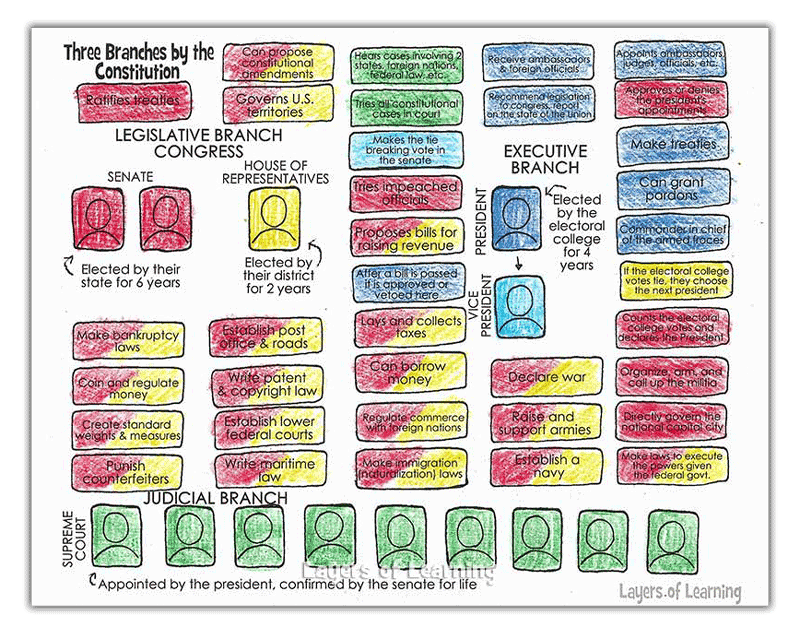 Three Branches by the
Constitution
Ratifies treaties
Can propose
constitutional
amendments
Governs U.S.
territories
LEGISLATIVE BRANCH
CONGRESS
SENATE
HOUSE OF
REPRESENTATIVES
Elected by their
state for 6 years
Elected by
their district
for 2 years
Make bankruptcy
laws
Coin and regulate
money
Create standard
weights & measures
Punish
counterfeiters
Establish post
office & roads
Write patent
& copyright law
Establish lower
federal courts
Write maritime
law
Hears cases involving 2
states, foreign nations,
federal law, etc.
Tries all constitutional
cases in court
Makes the tie
breaking vote in
the senate
Tries impeached
officials
Proposes bills for
raising revenue
After a bill is passed
it is approved or
vetoed here
Lays and collects
taxes
Can borrow
money
Regulate commerce
with foreign nations
Make immigration
(naturalization) laws
Receive ambassadors
& foreign officials
Recommend legislation
to congress, report
on the state of the union
EXECUTIVE
BRANCH
PRESIDENT
Elected
by the
electoral
college
for 4
years
VICE
PRESIDENT
Declare war
Raise and
support armies
Establish a
navy
Appoints ambassadors,
judges, officials, etc.
Approves or denies
the president's
appointments
Make treaties
Can grant
pardons
Commander in chief
of the armed froces
If the electoral college
votes tie, they choose
the next president
Counts the electoral
college votes and
declares the President
Organize, arm, and
call up the militia
Directly govern the
national capital city
Make laws to execute
the powers given
the federal govt.
JUDICIAL BRANCH
SUPREME
COURT
Appointed by the president, confirmed by the senate for life
Layers of Learning
Layers of Learning